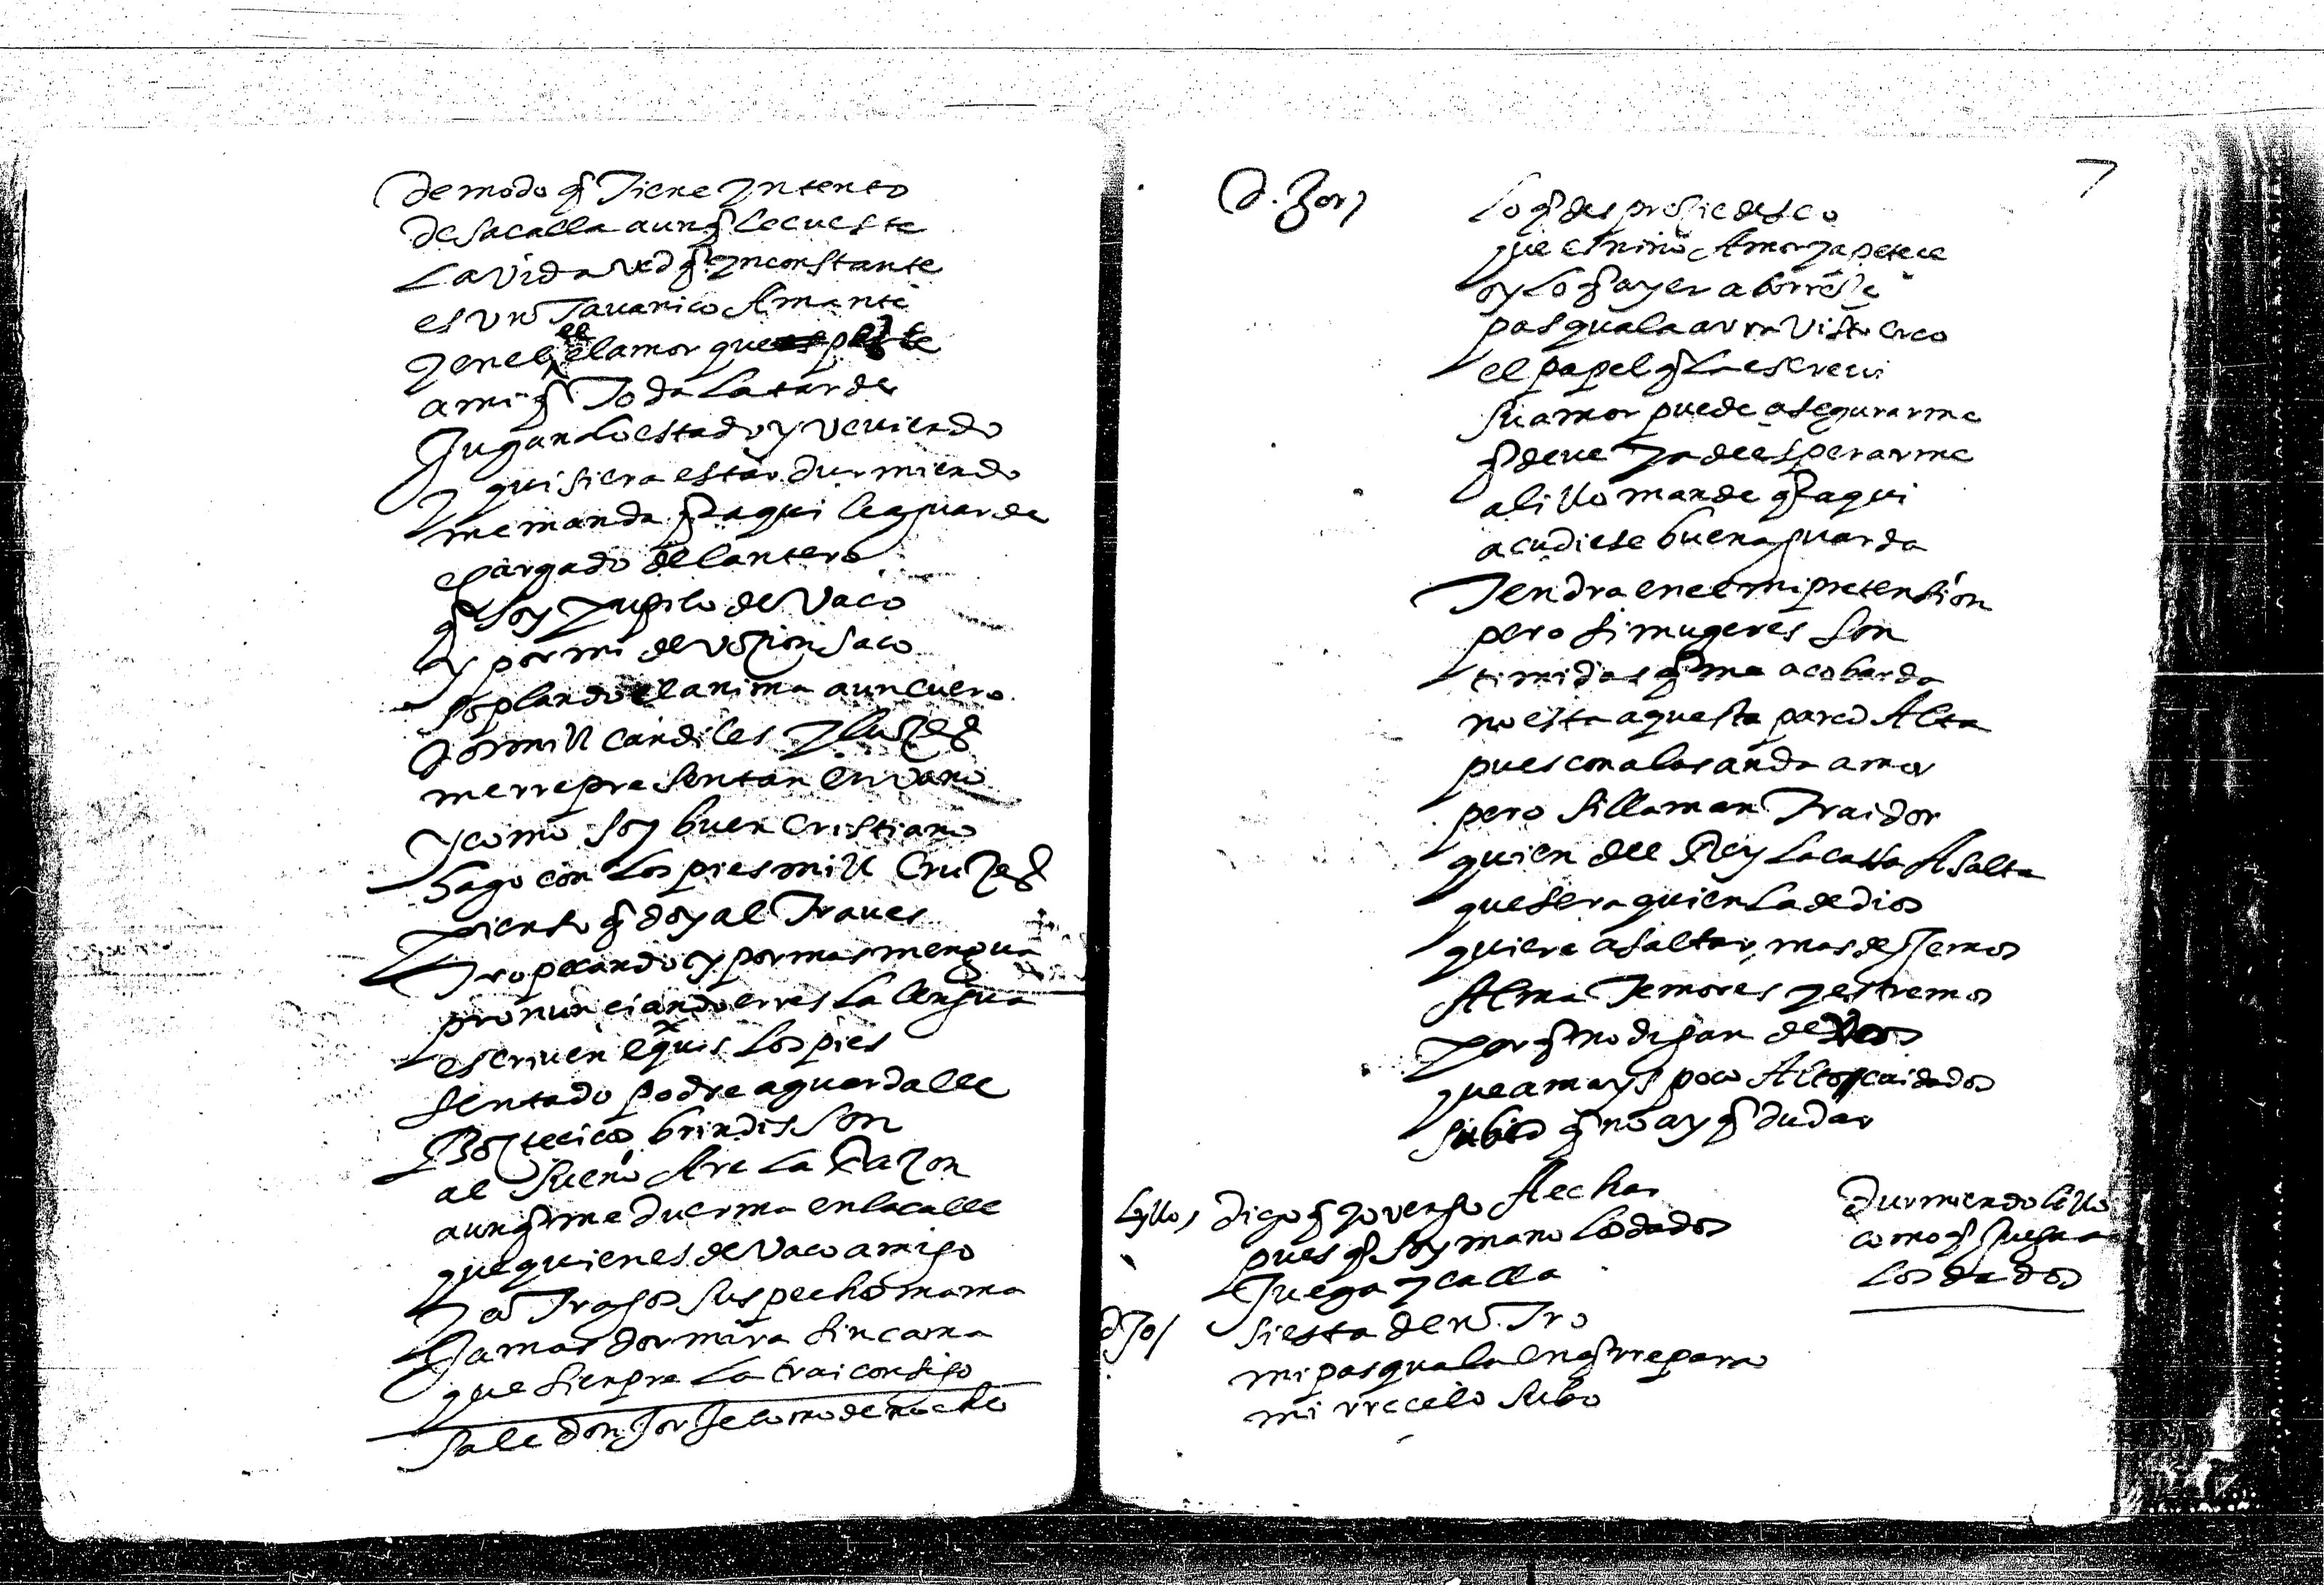 de modo q̃ Tiene yntento
de sacalla aunq̃ le cueste
la vida ved q̃ ynconstante
es un Tauanico Amante
y en el el amor que peste
a mi q̃ Toda la tarde
Jugando e estado y veuiendo
y quisiera estar durmiendo
me manda q̃ aqui le aguarde
cargado delantero
q̃ soy pupilo de Vaco
y por mi deuozion saco
soplando el anima a un cuero
dos mill candiles y luzes
me rrepresentan en vano
y como soy buen cristiano
hago con los pies mill Cruzes
pienso q̃ doy al Traues
Tropecando y por mas mengua
pronunciando erres la lengua
escriuen equis los pies
sentado podre aguardalle
Bostecicos brindis son
al sueño Are la Razon
aunq̃ me duerma en la calle
que quien es de Vaco amigo
y a Tragos suspechos mama
Jamas dormira sin cama
que sienpre la trai consigo
sale don Jorge como de noche
7
d. Jorj
lo q̃ despreçie deseo
que el niño Amor ya petece
oy lo q̃ ayer aborreçe
pasquala aura visto creo
el papel q̃ la escreui
su amor puede asegurarme
q̃ deue ya de esperarme
a lillo mande q̃ aqui
acudiese buena guarda
Tendra en el mi pretension
pero si mugeres son
timidas q̃ me acobarda
no esta aquesta pared Alta
pues con alas anda amor
pero si llaman Traidor
quien del Rey la cassa Asalta
que sera quien la de dios
quiere asaltar, mas dejemos
Alma Temores y estremos
porq̃ no digan de vos
que amays poco Altos cuidados
subid q̃ no ay q̃ dudar
lillo,
digo q̃ yo vengo Aechar
pues q̃ soy mano los dados
Juega y calla
durmiendo lillo
como q̃ Juega a
los dados
d Jo/
si esta dentro
mi pasquala en q̃ rrepara
mi rrecelo subo